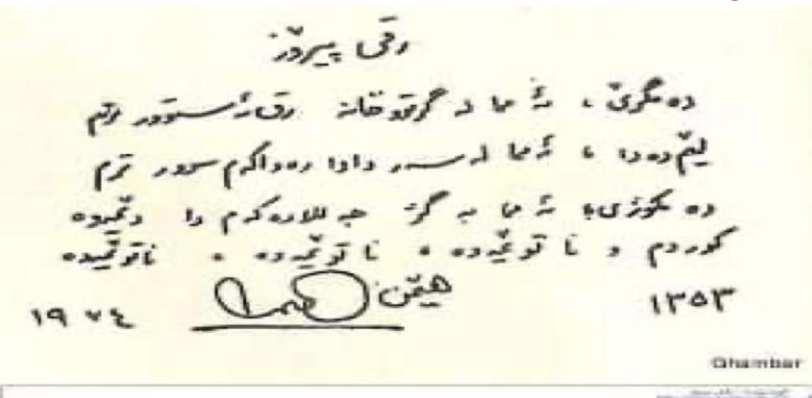 رقی پیرۆز
دەمگرێ ، ئەما لە گرتوخانە رق ئەستوور ترم
لێم دەدا ، ئەما لە سەر داوا رەواکەم سوور ترم
دەمکوژی؛ ئەما بە گژ جەللادەکەم دا دێمەوە
کوردم و ناتوێمەوە ، ناتوێمەوە ، ناتوێمەوە
هێمن
١٣٥٣
١٩٧٤
Ghambar